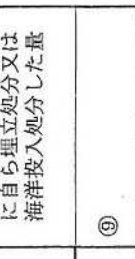 に自ら埋立処分又は
海洋投入処分した量
⑨